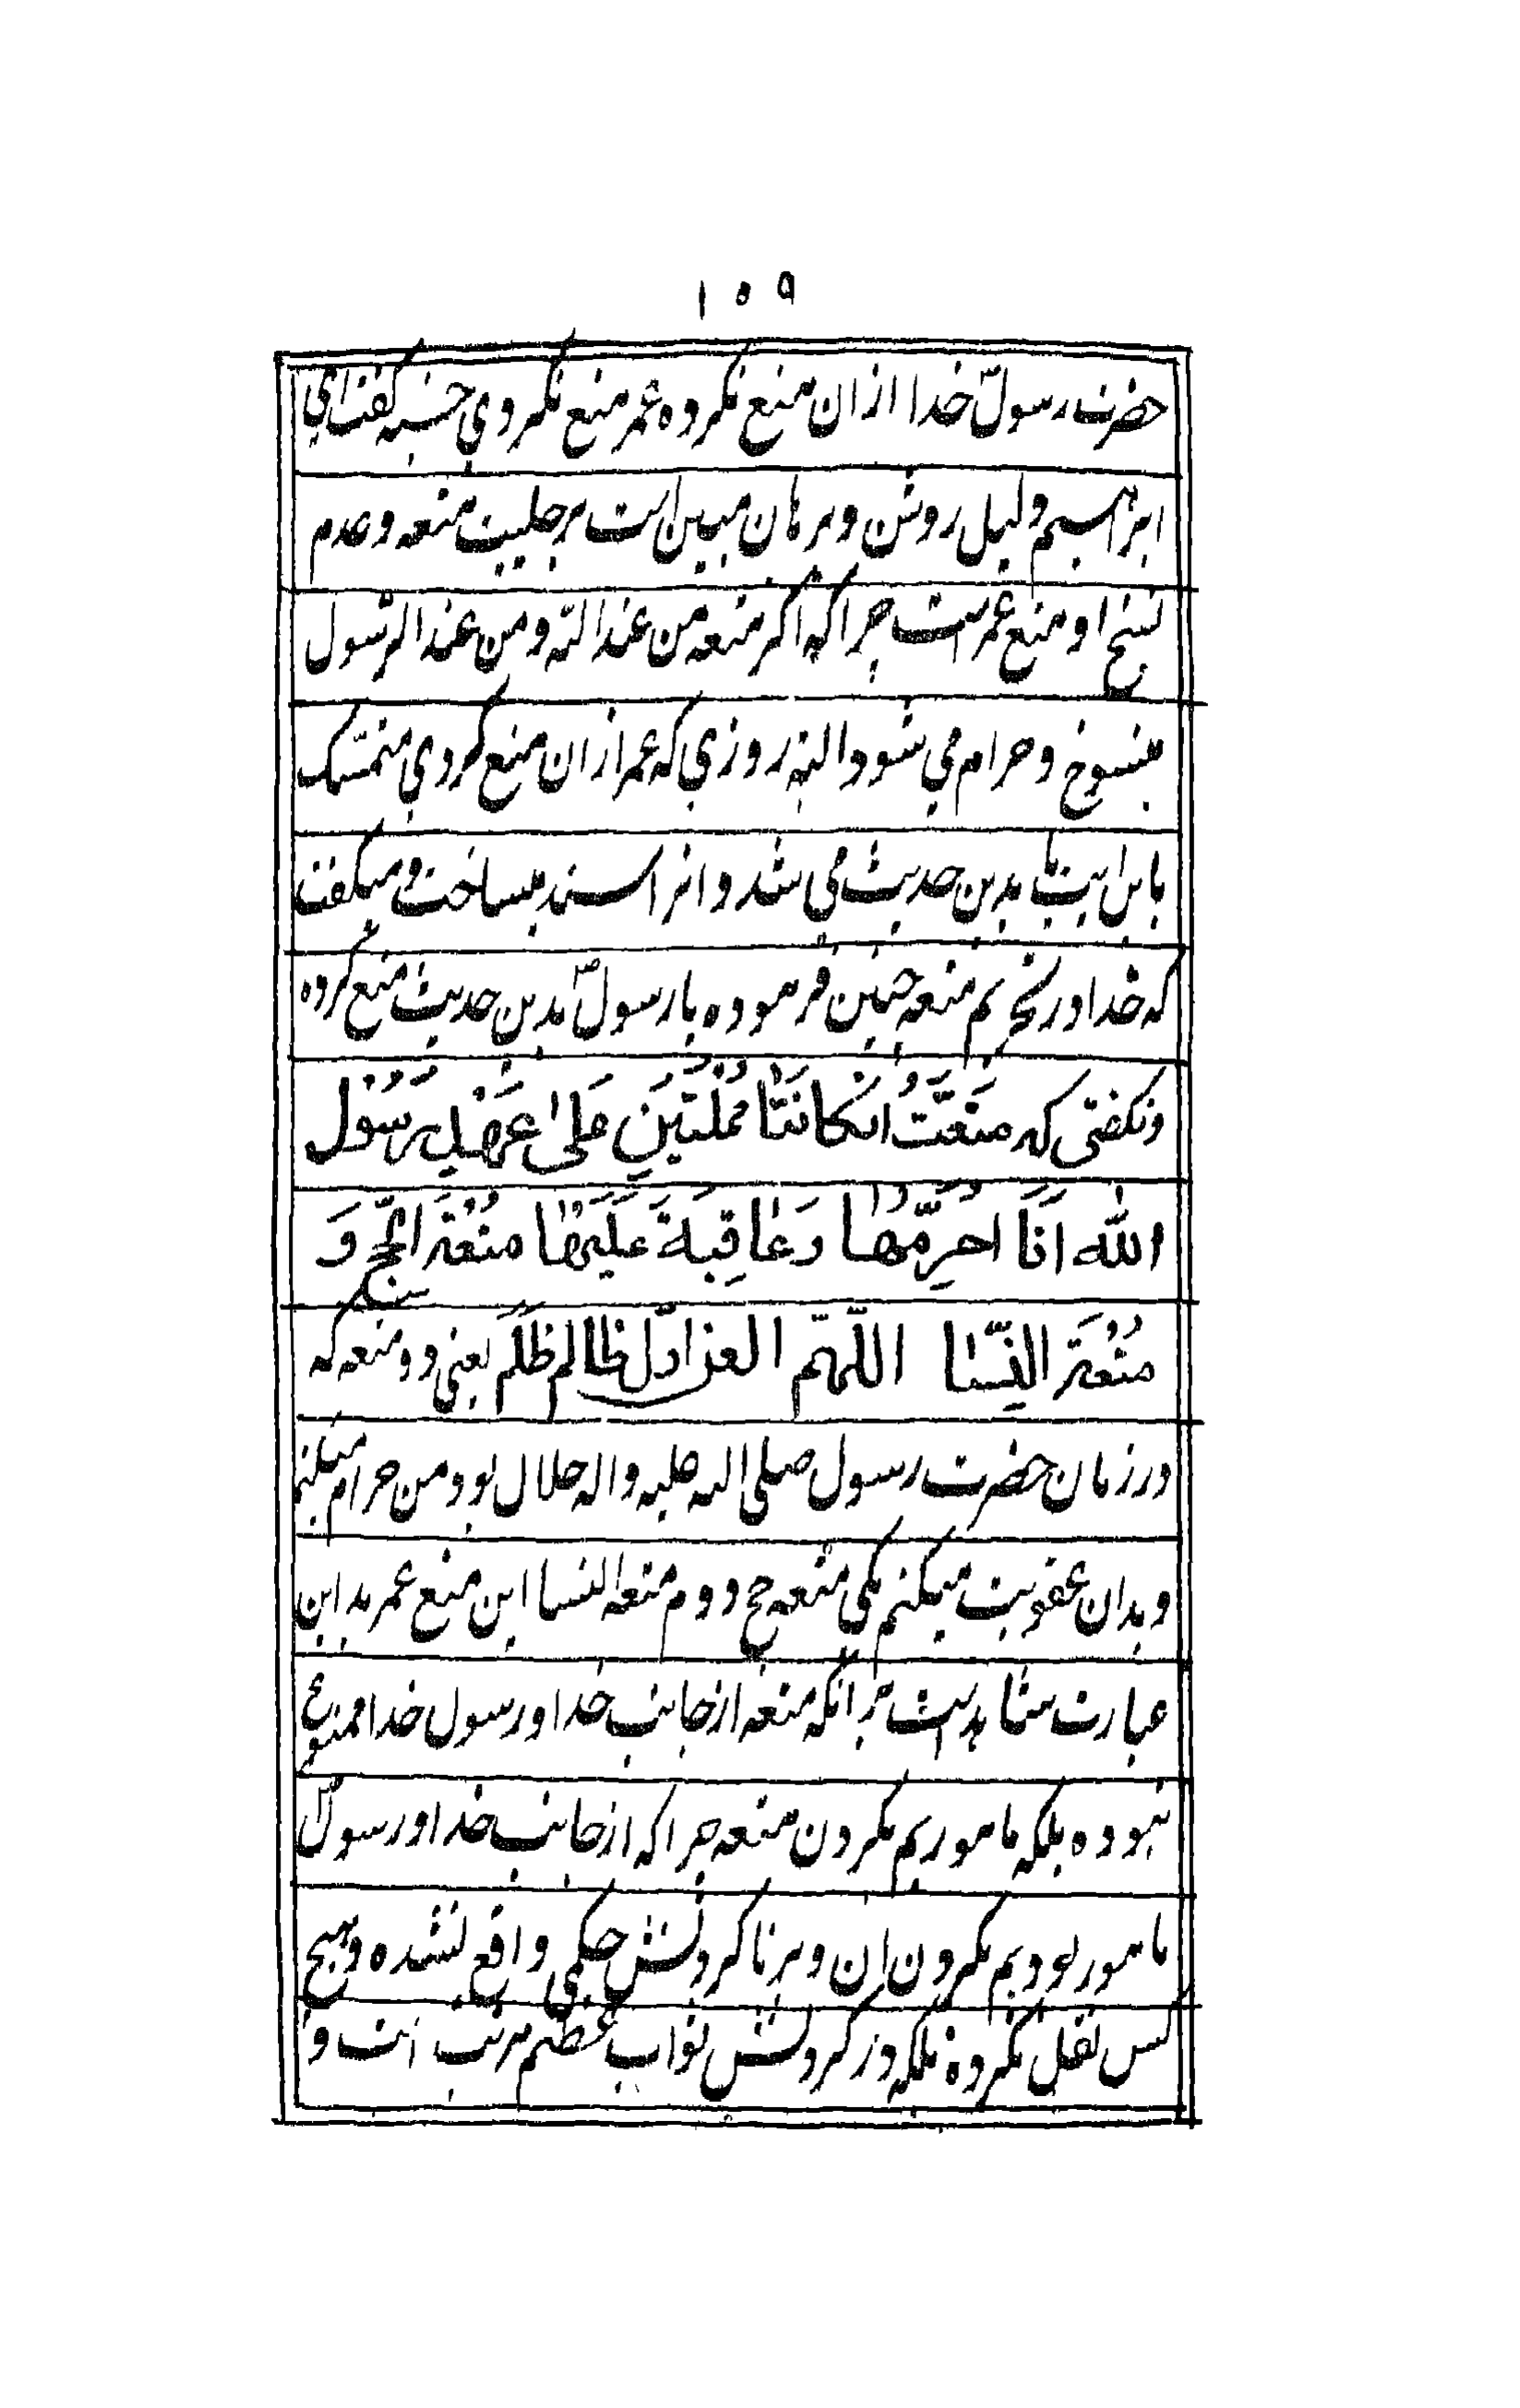 ۱۰۹
حضرت رسولؐ خدا ازان منع نکرده عمر منع نکردی حسنیه گفت ای
ابراهیم دلیل روشن و برهان مبین است بر حلیت متعه و عدم
نسخ او منع عمر است چرا که اگر متعه من عند الله و من عند الرسول
منسوخ و حرام می شود البته روزی که عمر ازان منع کردی متمسک
باین ایت یا بدین حدیث می شد و انرا سند میساخت و میگفت
که خدا در تحریم متعه چنین فرموده یا رسولؐ بدین حدیث منع کرده
و نگفتی که مُتْعَتٰانِ کانَتٰا مُحَلَّلَتَیْنِ عَلیٰ عَهْدِ رَسُوْلِ
الله اَنَا اُحَرِّمُهٰا وَ عٰاقِبَةَ عَلَیْهٰا مُتْعَةَ الْحَجِّ وَ
مُتْعَةَ النِّسٰا اللّهمّ العن اوّل ظالم ظَلَمَ یعنی دو متعه که
در زمان حضرت رسول صلی الله علیه و اله حلال بود من حرام میکنم
و بدان عقوبت میکنم یکی متعه حج دوم متعه النسا این منع عمر بداین
عبارت شاهد است بر انکه متعه از جانب خدا و رسول خدا ممنوع
نبوده بلکه ماموریم بکردن متعه چرا که از جانب خدا و رسولؐ
مامور بودیم بکردن ان و بر ناکردنش حکمی واقع نشده و هیچ
کس نقل نکرده بلکه در کردنش ثواب عظیم مرتب است و